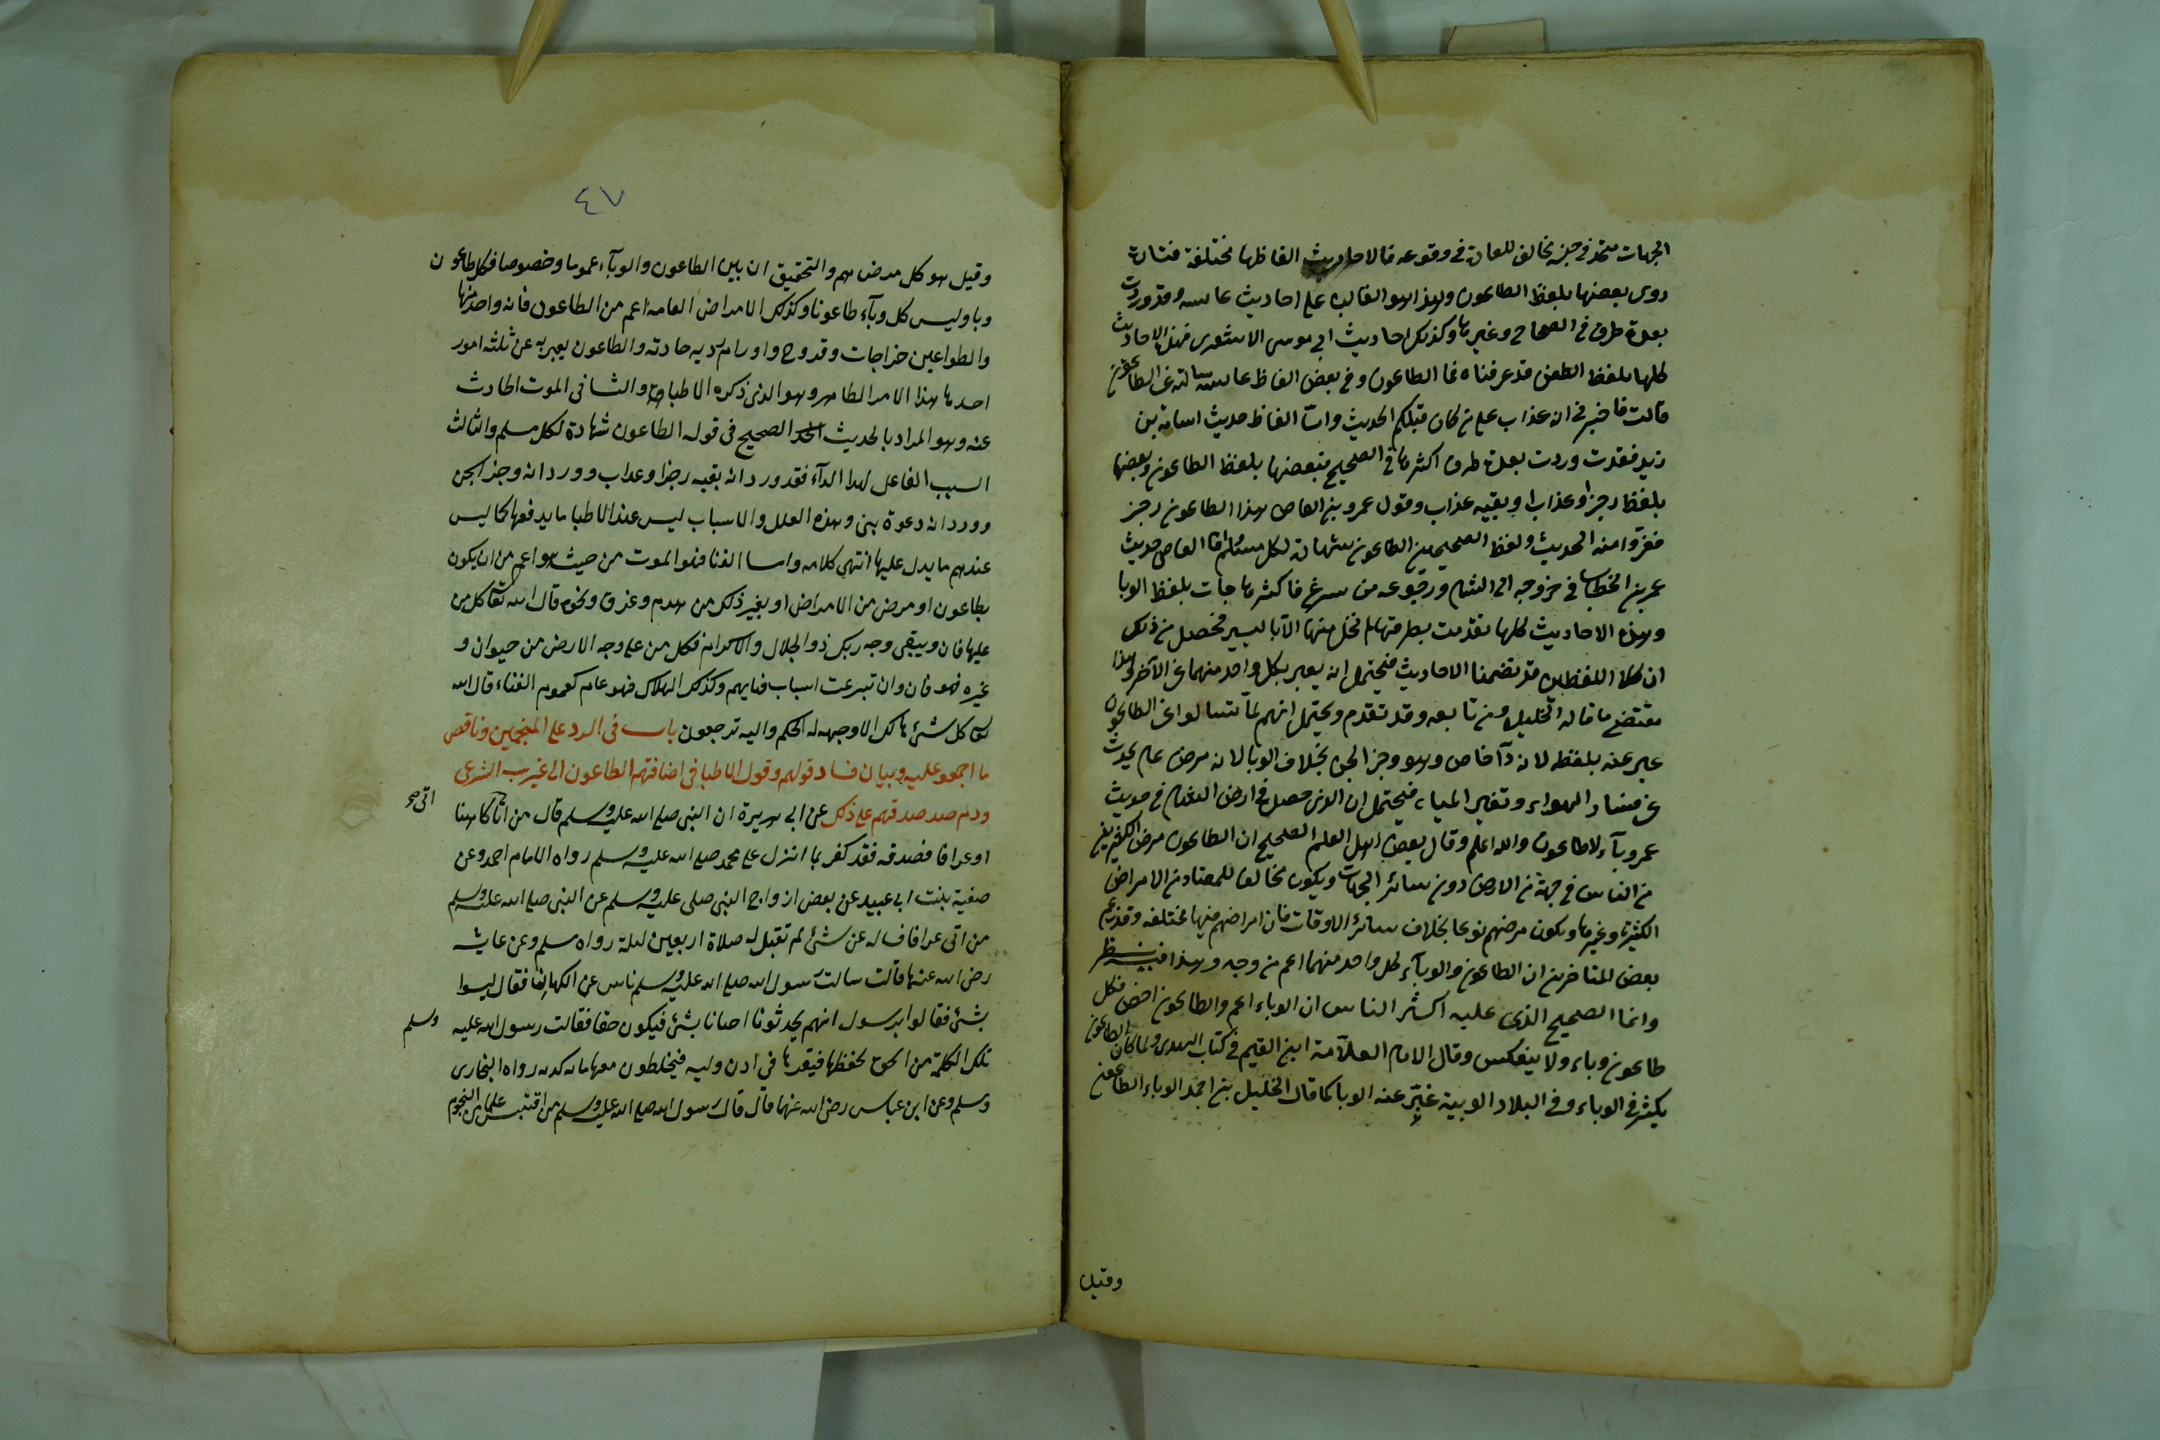 الجهات متحد في جنسه مخالف للعادة في وقوعه فالاحاديث الفاظها مختلفة فتارة
روى بعضها بلفظ الطاعون وهذا هو الغالب على احاديث عايشه وقد وردت
بعدة طرق في الصحاح وغيرها وكذلك احاديث ابي موسى الاشعري فهذه الاحاديث
كلها بلفظ الطعن قد عرفناه فما الطاعون وفي بعض الفاظ عايشه سالته عن الطاعون
قالت فاخبرني انه عذاب على من كان قبلكم الحديث واما الفاظ حديث اسامة بن
زيد فقد وردت بعدة طرق اكثرها في الصحيح فبعضها بلفظ الطاعون وبعضها
بلفظ رجز او عذاب او بقيه عذاب وقول عمرو بن العاص هذا الطاعون رجز
ففروا منه الحديث ولفظ الصحيحين الطاعون شهادة لكل مسلم اما الفاظ حديث
عمر بن الخطاب في خروجه الى الشام ورجوعه من سرغ فاكثرها جات بلفظ الوبا
وهذه الاحاديث كلها تقدمت بطرقها لم نخل منها الا باليسير فحصل من ذلك
ان كلا اللفظين قد تضمنا الاحاديث فيحتمل انه يعبر بكل واحد منهما عن الآخر وهذا
مقتضى ما قاله الخليل ومن تابعه وقد تقدم ويحتمل انهم لما تسالوا عن الطاعون
عبر عنه بلفظه لانه دآ خاص وهو وخز الجن بخلاف الوبا لانه مرض عام يحدث
عن فساد الهواء وتغير المياه فيحتمل ان الذي حصل في ارض الشام في حديث
عمر وبآء لا طاعون والله اعلم وقال بعض اهل العلم الصحيح ان الطاعون مرض الكثيرين
من الناس في جهة من الارض دون سائر الجهات ويكون مخالفا للمعتاد من الامراض
الكثيرة وغيرها ويكون مرضهم نوعا بخلاف سائر الاوقات فان امراضهم فيها مختلفه وقد زعم
بعض المتاخرين ان الطاعون والوبآء كل واحد منهما اعم من وجه وهذا فيه نظر
وانما الصحيح الذي عليه اكثر الناس ان الوباء اعم والطاعون اخص فكل
طاعون وباء ولا ينعكس وقال الامام العلآمة ابن القيم في كتاب الهدى ولما كان الطاعون
يكثر في الوباء وفي البلاد الوبية عبّر عنه الوبا كما قال الخليل بن احمد الوباء الطاعون
وقيل
٤٧
وقيل هو كل مرض عم والتحقيق ان بين الطاعون والوبآء عموما وخصوصا فكل طاعون
وبا وليس كل وبآء طاعونا وكذلك الامراض العامه اعم من الطاعون فانه واحد منها
والطواعين خراجات وقروح واورام رديه حادثه والطاعون يعبر به عن ثلثه امور
احدها هذا الامر الظاهر وهو الذي ذكره الاطباء والثاني الموت الحادث
عنه وهو المراد بالحديث الصحيح في قوله الطاعون شهادة لكل مسلم والثالث
السبب الفاعل لهذا الدآء فقد ورد انه بقيه رجز او عذاب وورد انه وخز الجن
وورد انه دعوة نبي وهذه العلل والاسباب ليس عند الاطبا ما يدفعها كما ليس
عندهم ما يدل عليها انتهى كلامه واما الفنا فهو الموت من حيث هو اعم من ان يكون
بطاعون او مرض من الامراض او بغير ذلك من هدم وغرق ونحوه قال الله تعا كل من
عليها فان ويبقى وجه ربك ذو الجلال والاكرام فكل من على وجه الارض من حيوان و
غيره فهو فان وان تبرعت اسباب فنايهم وكذلك الهلاك فهو عام كعموم الفناء قال الله
تعا كل شئ هالك الا وجهه له الحكم واليه ترجعون باب في الرد على المنجمين وناقص
ما اجمعو عليه وبيان فساد قولهم وقول الاطبا في اضافتهم الطاعون الى غير سبب الشرعي
وذم صد صدقهم على ذلك عن ابي هريرة ان النبي صلى الله عليه وسلم قال من اتا كاهنا
اتى صح
او عرافا فصدقه فقد كفر بما انزل على محمد صلى الله عليه وسلم رواه الامام احمد وعن
صفية بنت ابي عبيد عن بعض ازواج النبي صلى عليه وسلم عن النبي صلى الله عليه وسلم
من اتى عرافا فساله عن شئ لم تقبل له صلاة اربعين ليلة رواه مسلم وعن عايشه
رضى الله عنها قالت سالت رسول الله صلى الله عليه وسلم ناس عن الكهان فقال ليسوا
بشئ فقالوا يرسول انهم يحدثونا احيانا بشئ فيكون حقا فقالت رسول الله عليه
وسلم
تلك الكلمة من الحق يحفظها فيقرها في اذن وليه فيخلطون معها مائه كذبه رواه البخارى
وسلم وعن ابن عباس رضى الله عنهما قال قال رسول الله صلى الله عليه وسلم من اقتبس علما من النجوم